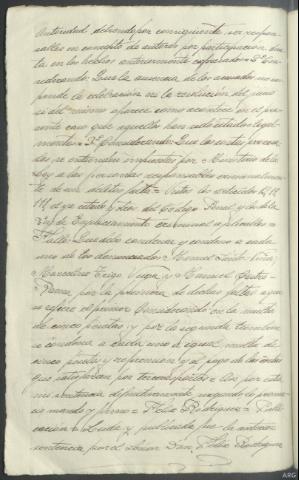 Autoridad debiendo por consiguiente ser respon-
sables en concepto de autores por participación direc-
ta en los hechos anteriormente espresados = 2º Con-
siderando: Que la ausencia de los acusados no sus-
pende la celebración ni la resolución del juicio
si del mismo aparece como acontece en el pre-
sente caso que aquellos han sido citados legal-
mente = 3º Considerando: Que las costas procesa-
les se entienden impuestas por Ministerio de la
Ley a las personas responsables criminalmen-
te de un delito o falta = Vistos los artículos
del Código Penal y la de la
Ley de Enjuiciamiento criminal aplicables =
Fallo: Que debo condenar y condeno a cada
uno de los denunciados Manuel
Marcelino Trigo Veiga y Manuel Castro
por la primera de dichas faltas a que
se refiere el primer Considerando en la multa
de cinco pesetas, y por la segunda tambien
se condena a cada uno a igual multa de
cinco pesetas y reprension y al pago de las costas
que satisfarán por terceras partes = Asi por esta
mi sentencia definitivamente juzgando lo pronun-
cio mando y firmo = Felix Rodriguez = Publi-
cación = Leida y publicada fue la anterior
sentencia por el Señor Don Felix Rodriguez
ARG